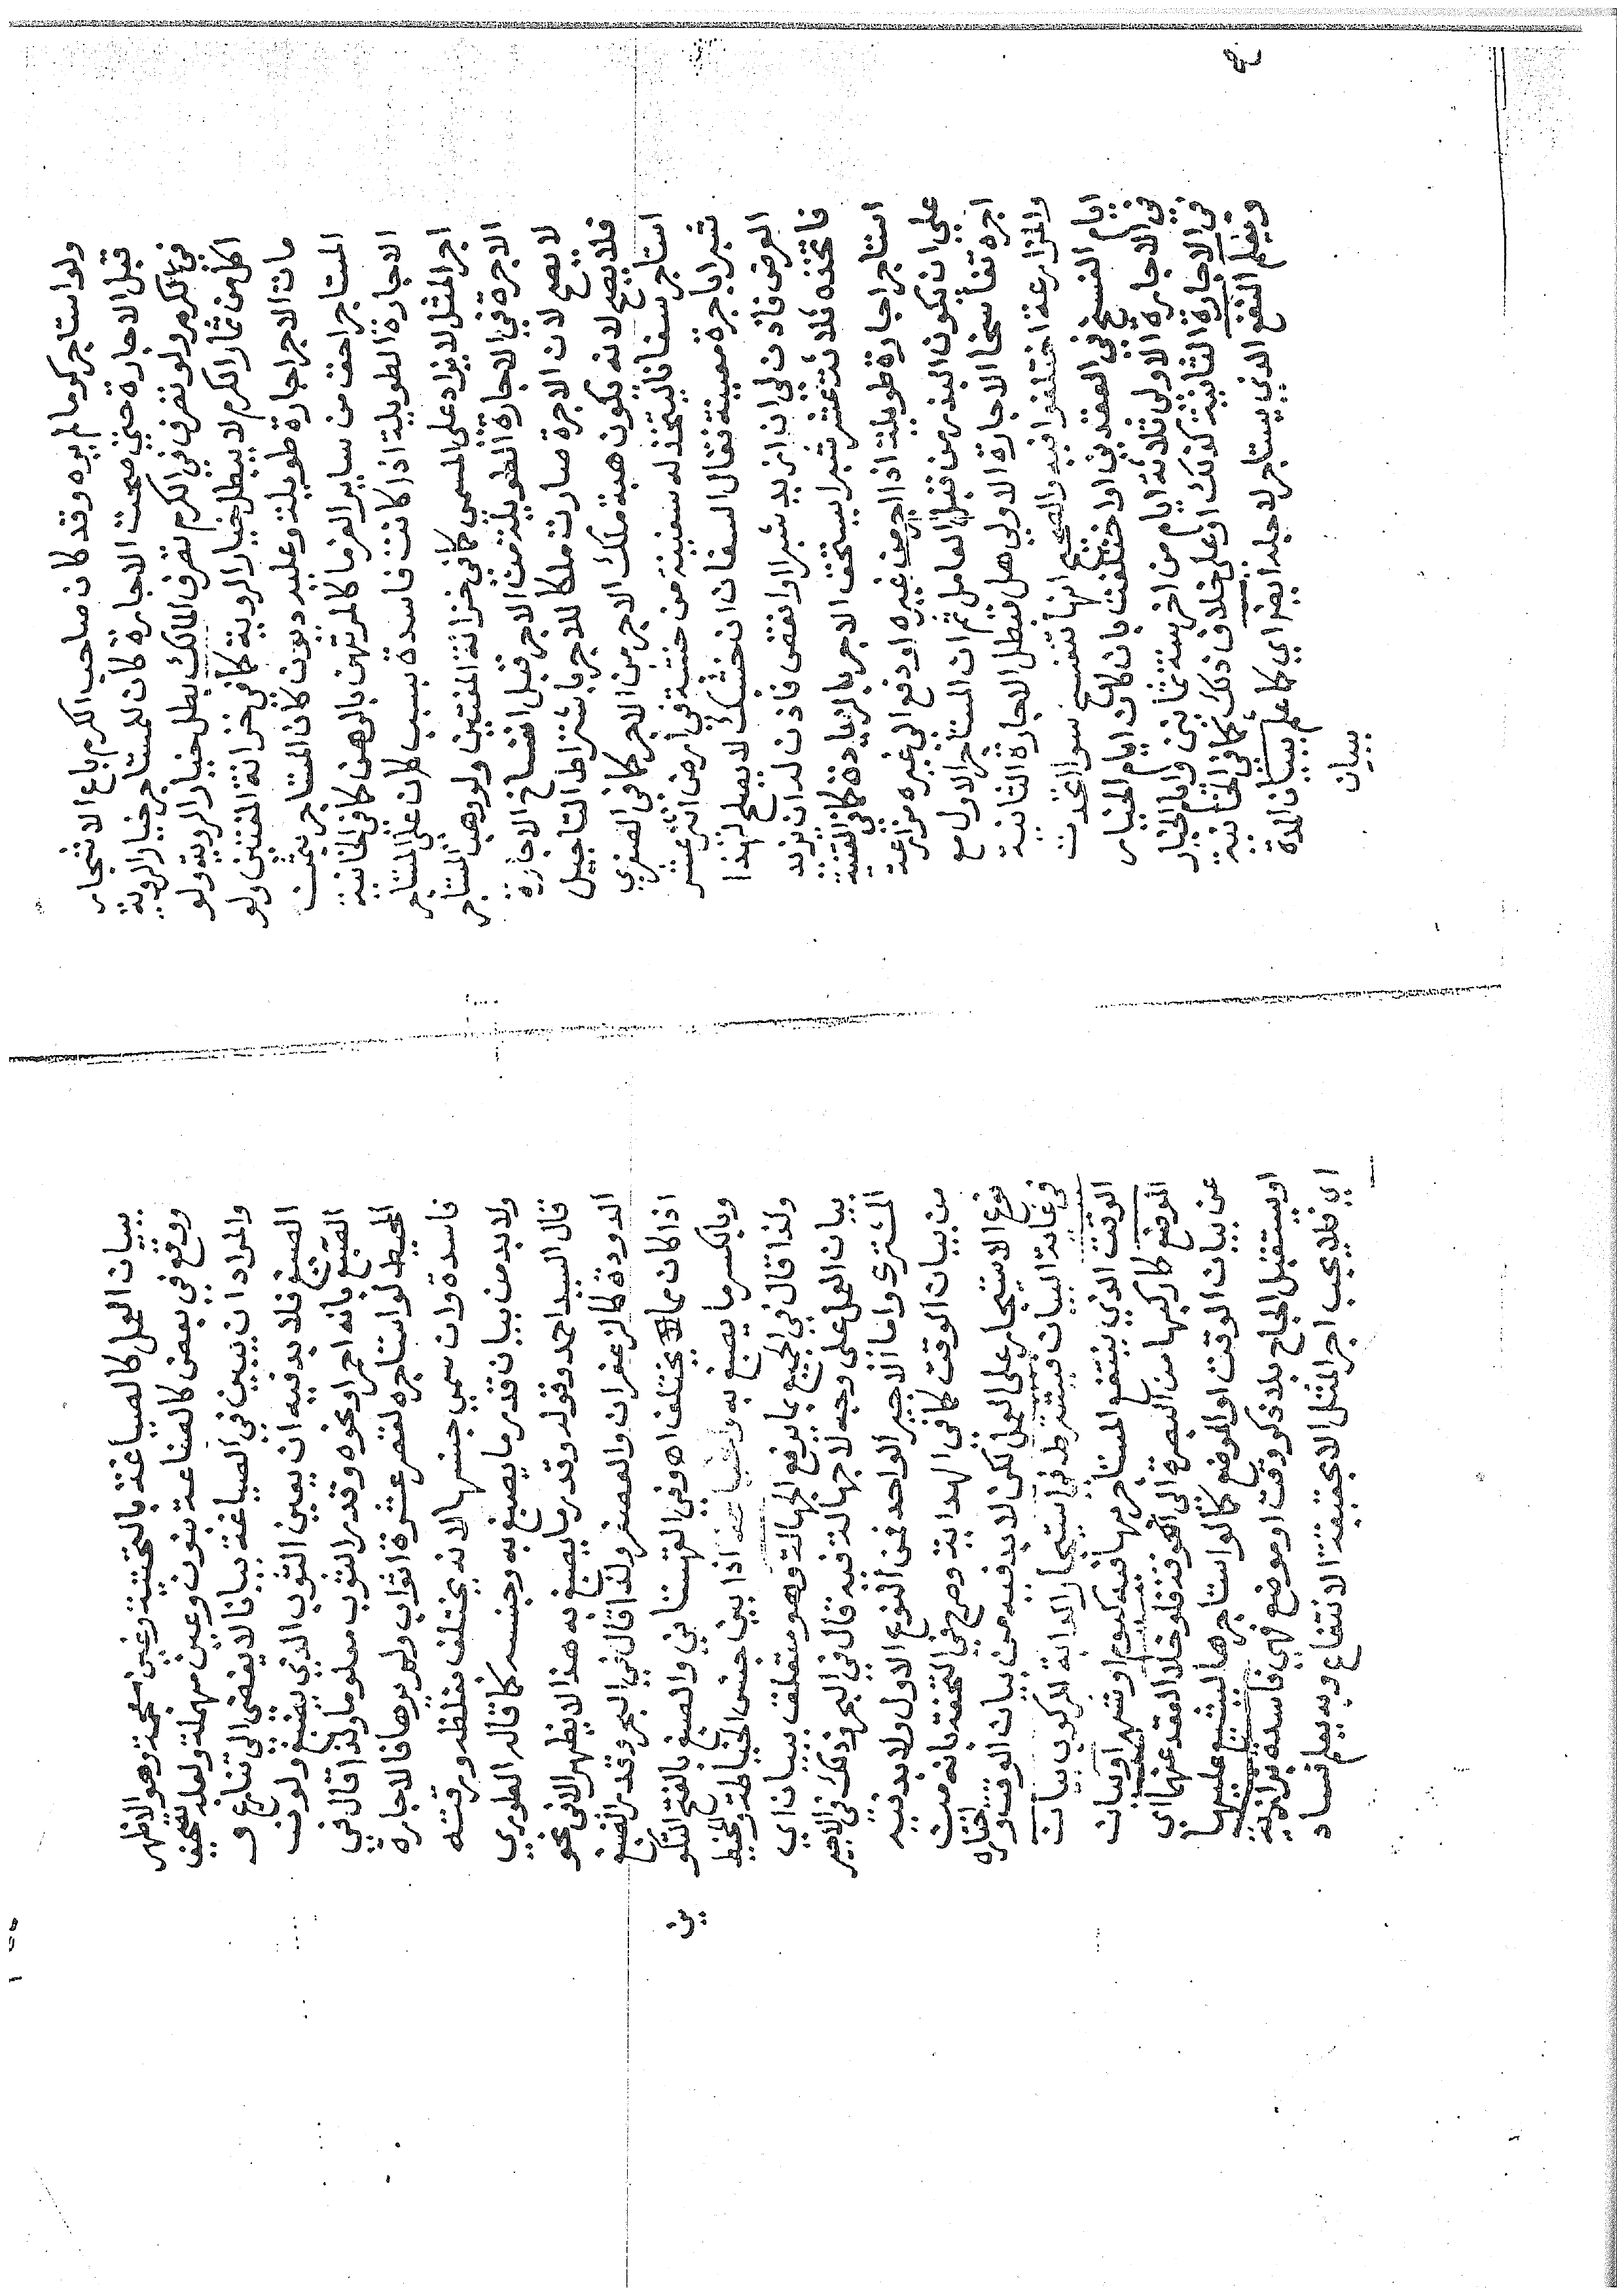 ولو استاجر كرما لم يره وقد كان صاحب الكرم باع الاشجار
قبل الاجارة حتي صحت الاجارة كان للمستاجر خيار الروية
في الكرم ولو تصرف في الكرم تصرف المالك بطل خيار الروية ولو
اكل من ثمار الكرم لا يبطل خيار الروية كما في خزانة المفتين ولو
مات الاجر اجارة طويلة وعليه ديون كان المستاجر بحبث
المستاجر احق من ساير الغرما كالمرتهن بالرهن كما في الخانية
الاجارة الطويلة اذا كانت فاسدة بسبب كان على المستاجر
اجر المثل لا يزاد على المسمى كما في خزانة المفتين ولو وهب المستاجر
الاجرة في الاجارة الطويلة من الاجر قبل انفساخ الاجارة
لا يصح لان الاجرة صارت ملكا للاجر باشتراط التاجيل
فلا يصح لانه يكون هبة ملك الاجر من الاجر كما في الصغري
استاجر سفانا ليتخذ له سفينة من خشبة في ارض اثني عشر
شبرا باجرة معينة فقال السفان ان خشبك لا يصلح لهذا
العرض فاذن لي ان ازيد شبرا او انقص فاذن له ان يزيد
فاتخذه ثلاثة عشر شبرا يستحق الاجر بالزيادة كما في القنية
استاجر اجارة طويلة اذا اجر من غيره او دفع الي غيره مزارعة
علي ان يكون البذر من قبل العامل ثم ان المستاجر الاول مع
اجره تفاسخا الاجارة الاولي هل تبطل الاجارة الثانية
والمزارعة اختلفوا فيه والصحيح انها تنفسخ سوا اتحدت
ايام الفسخ في العقدين او اختلفت بان كان ايام الخيار
في الاجارة الاولي ثلاثة ايام من اخر سنة ثمانين وايام الخيار
في الاجارة الثانية كذلك او على خلاف ذلك كما في الخانية
ويعلم النفع الذي يستاجر لاجله ايضا اي كما علم ببيان المدة
بيان
بيان العمل كالصياغة بالتحتية وغين معجمة وهو الاظهر
ووقع في بعض كالصناعة بنون وعين مهملة ولعله تصحيف
والمراد ان يبين في الصياغة بيانا لا يفضى الى تنازع و
الصبغ فلا بد فيه ان يعين الثوب الذي يصبغ ولون
الصبغ بانه احمر او نحوه وقدر الثوب معلوما ولذا قال في
المحيط لو استاجره لقصر عشرة اثواب ولم يرها فالاجاره
فاسدة وان سمي جنسها لانه يختلف بغلظه ورقته
ولا بد من بيان قدر ما يصبغ به وجنسه كما قاله الطوري
قال السيد احمد وقوله وقدر ما يصبغ به هذا لا يظهر الا في نحو
الدودة كالزعفران والعصفر ولذا قال في البحر وقدر الصبغ
اذا كان مما يختلف اه وفي القهستاني والصبغ بالفتح التلو
ين
وبالكسر ما يصبغ به والخياطة اذا بين جنس الخياطة والمخيط
ولذا قال في الجميع بما يرفع الجهالة وهو متعلق ببيان اي
بيان العمل على وجه لا جهالة فيه قال في البحر وذلك في الاجير
المشترى واما الاجير الواحد فمن النوع الاول ولا بد فيه
من بيان الوقت كما في الهداية وصرح في التحفة بانه من
نوع الاستيجار على العمل لكن لا بد فيه من بيان الوقت و
اختاره
في غاية البيان فيشترط في استيجار الدابة للركوب بيان
الوقت الذي ينتفع المستاجر بها فيه كيوم او شهر او بيان
الموضع كاركبها من البصرة الى الكوفة فلو خلا العقد عنهما اي
عن بيان الوقت او الموضع كما لو استاجرها ليشيع عليها
او يستقبل الحاج بلا ذكر وقت او موضع فهي فاسدة بزازية
اي فلا يجب اجر المثل الا بحقيقة الانتفاع وبه يعلم فساد